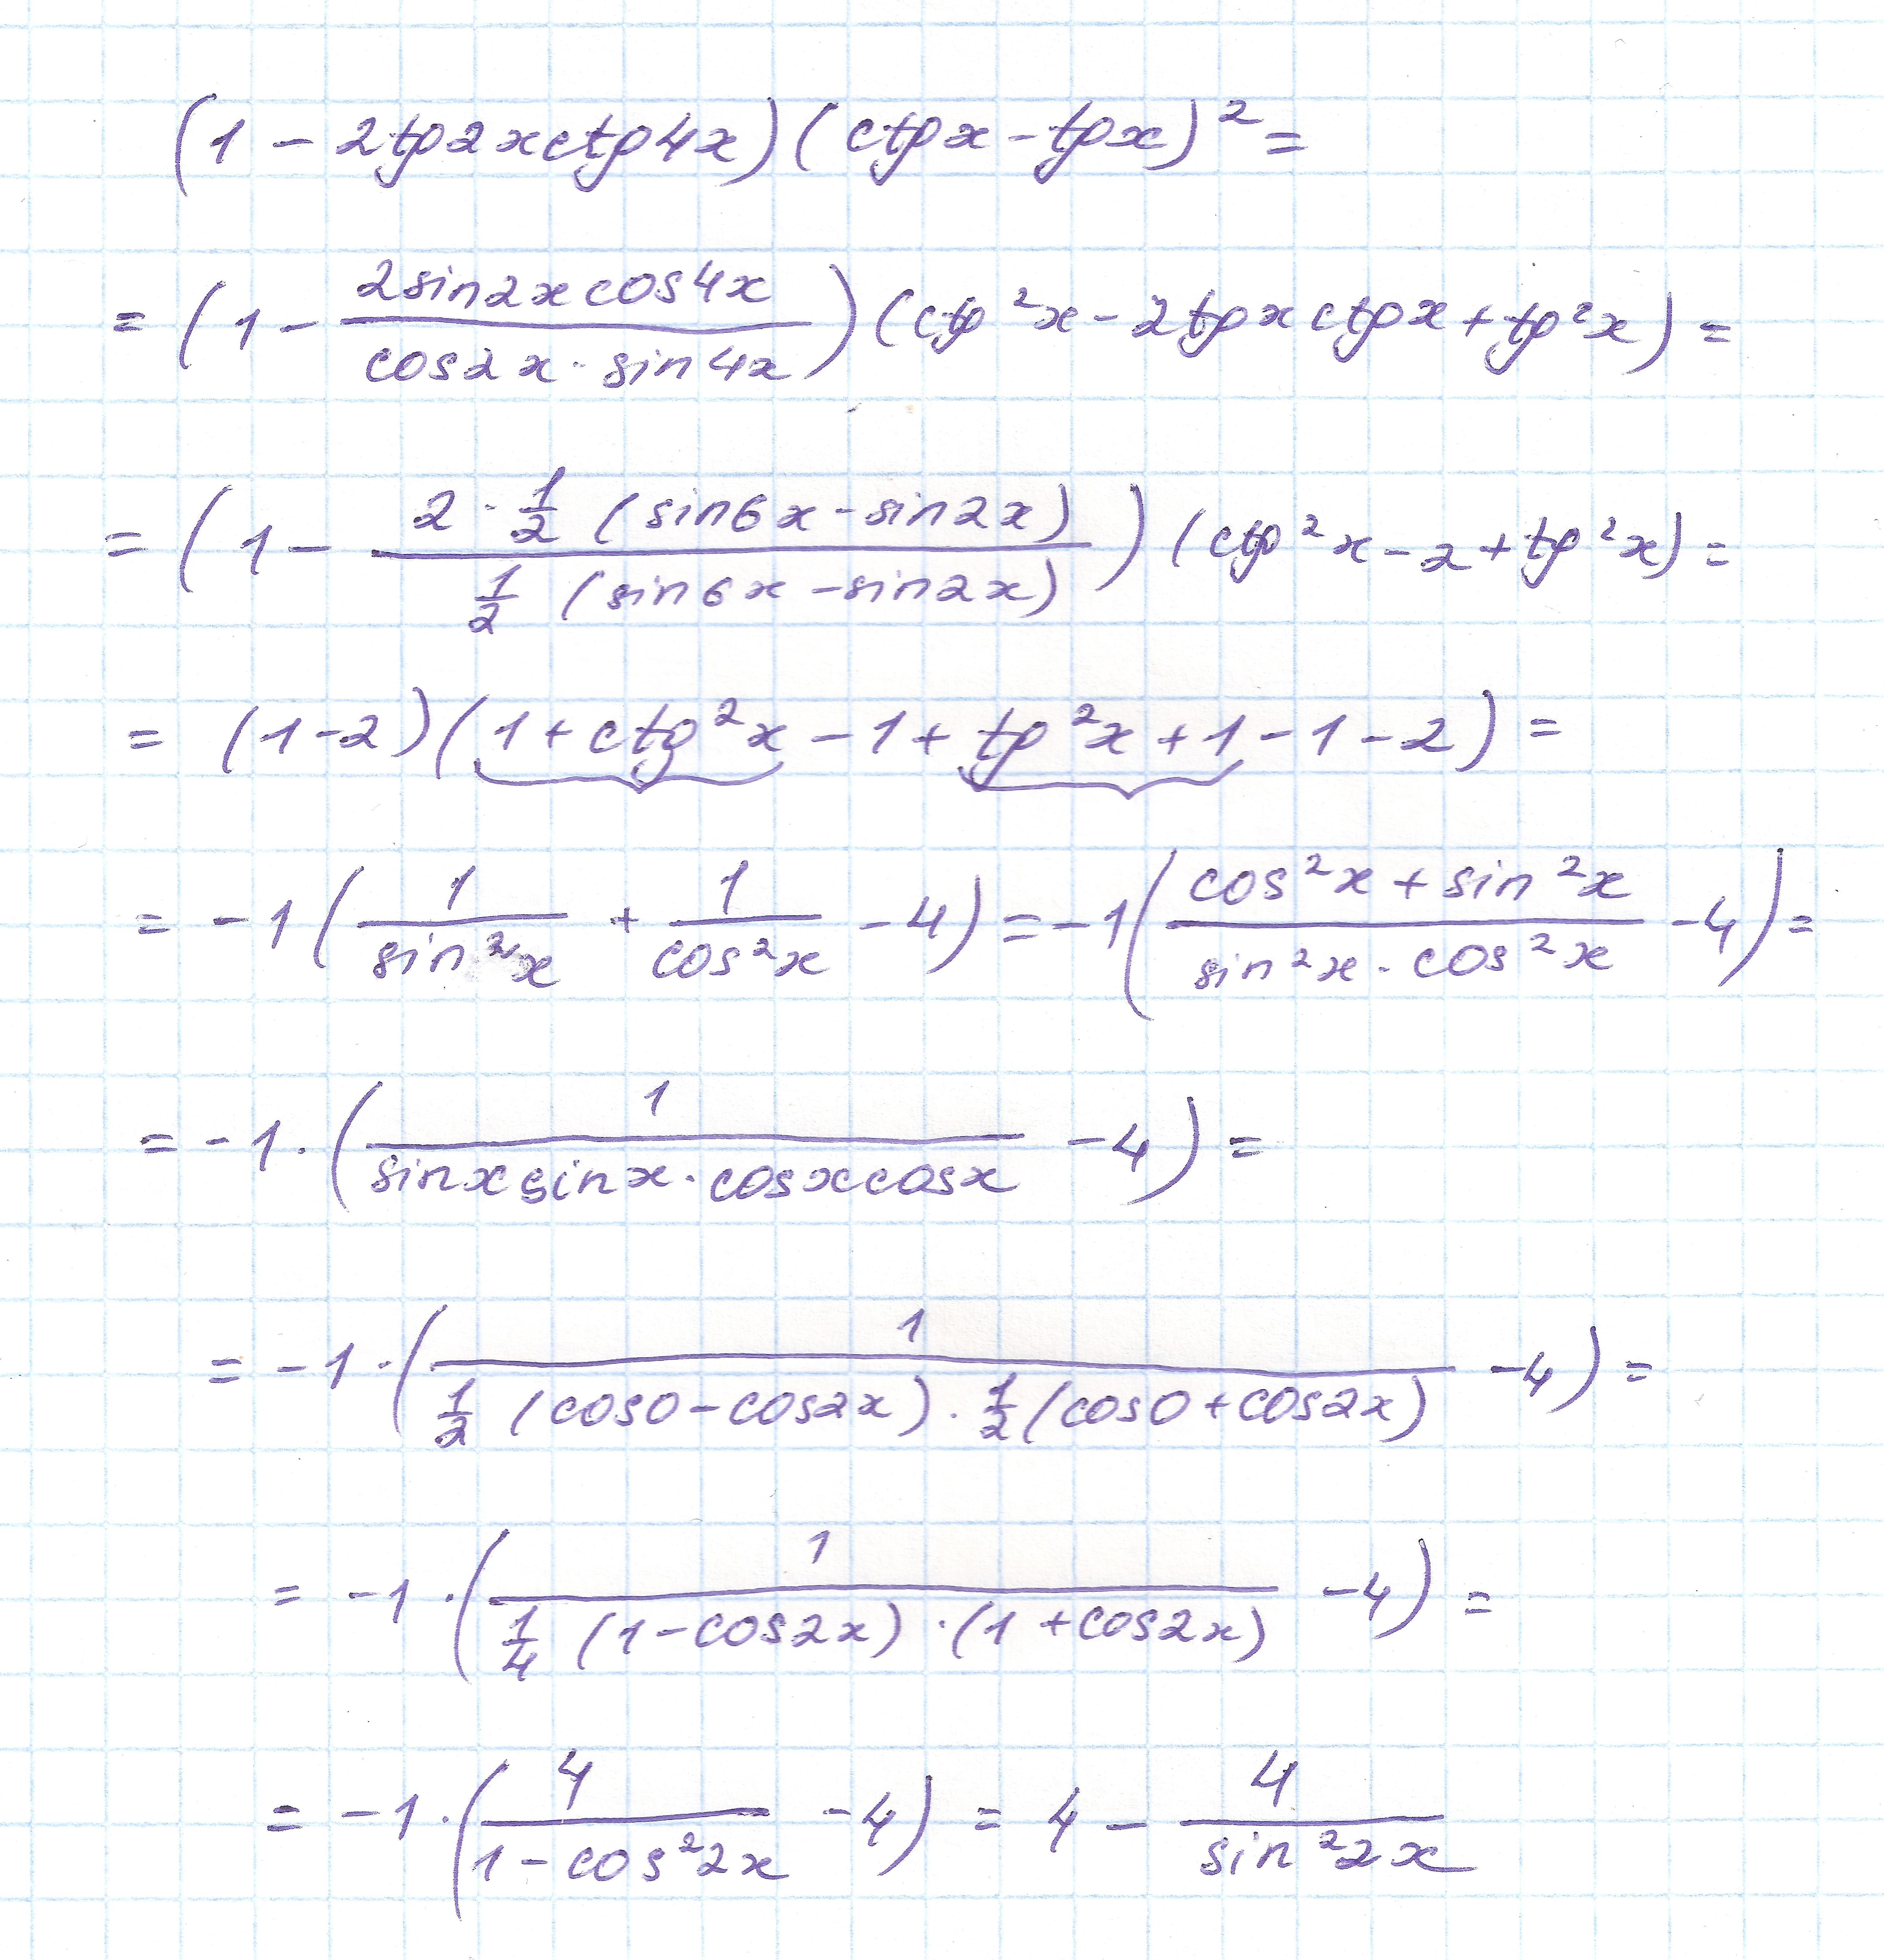 (1 - 2tg2xctg4x)(ctgx - tgx)² =
= (1 - \frac{2sin2xcos4x}{cos2x·sin4x})(ctg²x - 2tgxctgx + tg²x) =
= (1 - \frac{2·\frac{1}{2}(sin6x - sin2x)}{\frac{1}{2}(sin6x - sin2x)})(ctg²x - 2 + tg²x) =
= (1-2)(1 + ctg²x - 1 + tg²x + 1 - 1 - 2) =
= -1(\frac{1}{sin²x} + \frac{1}{cos²x} - 4) = -1(\frac{cos²x + sin²x}{sin²x·cos²x} - 4) =
= -1·(\frac{1}{sinxsinx·cosxcosx} - 4) =
= -1·(\frac{1}{\frac{1}{2}(cos0 - cos2x)·\frac{1}{2}(cos0 + cos2x)} - 4) =
= -1·(\frac{1}{\frac{1}{4}(1 - cos2x)·(1 + cos2x)} - 4) =
= -1·(\frac{4}{1 - cos²2x} - 4) = 4 - \frac{4}{sin²2x}